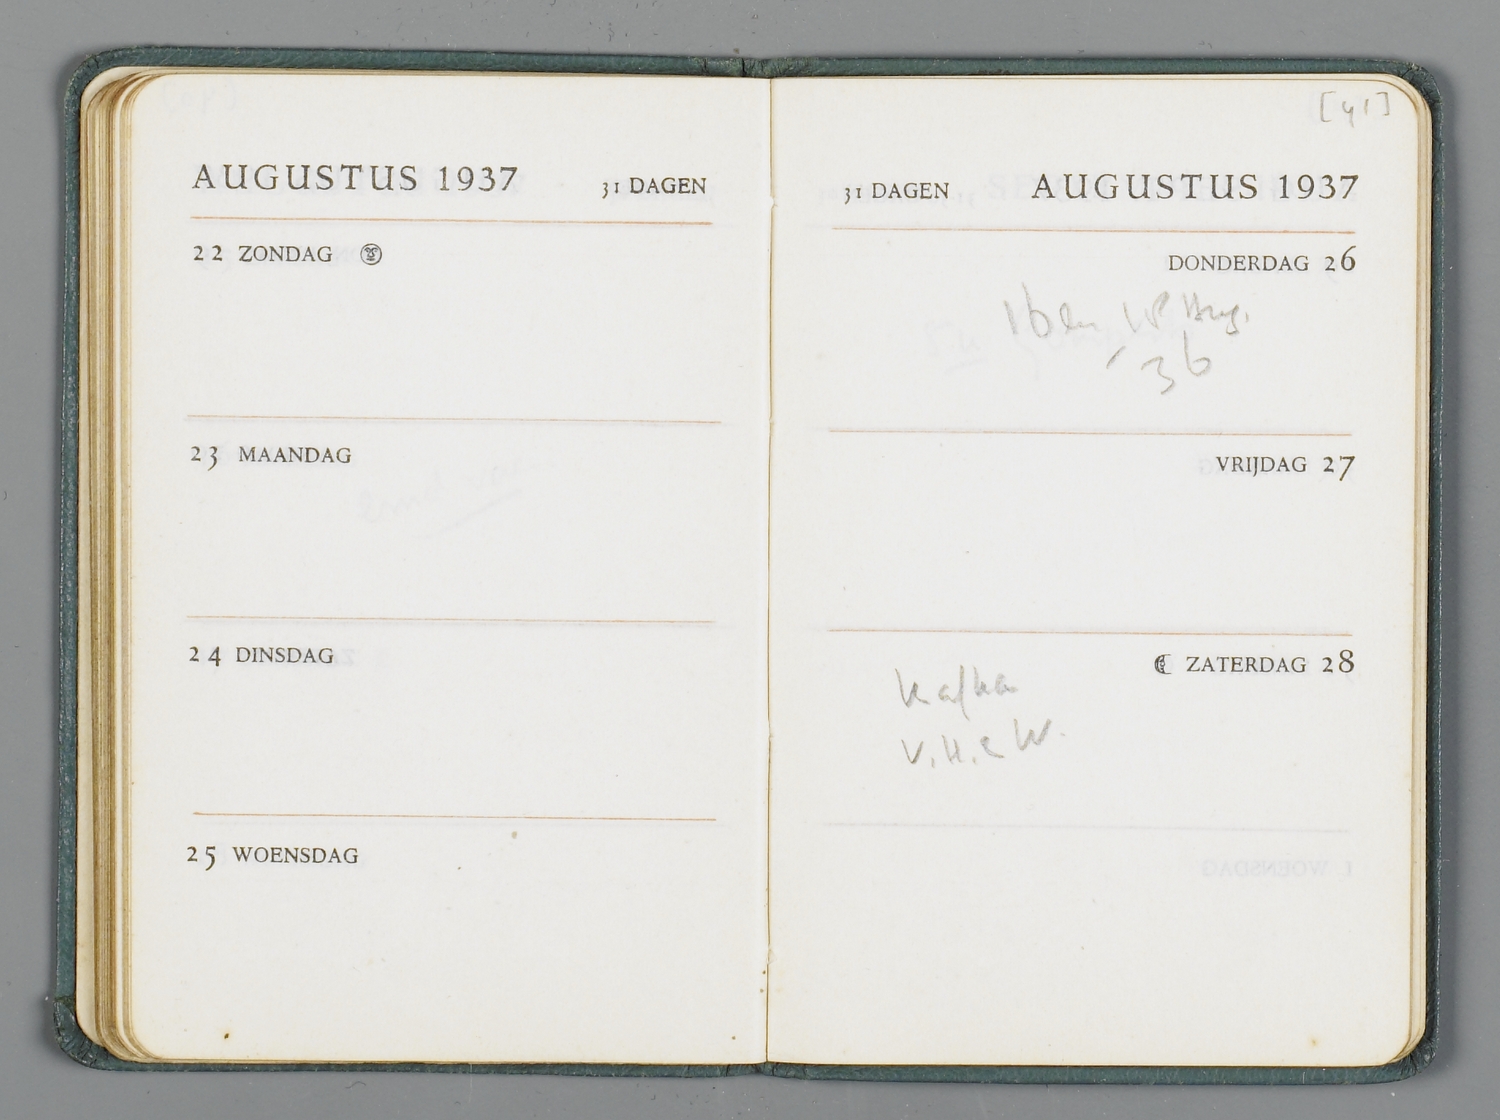 AUGUSTUS 1937 31 DAGEN
22 ZONDAG
23 MAANDAG
24 DINSDAG
25 WOENSDAG
[41]
31 DAGEN AUGUSTUS 1937
DONDERDAG 26
'36
VRIJDAG 27
ZATERDAG 28
Kafka
V.H. & W.